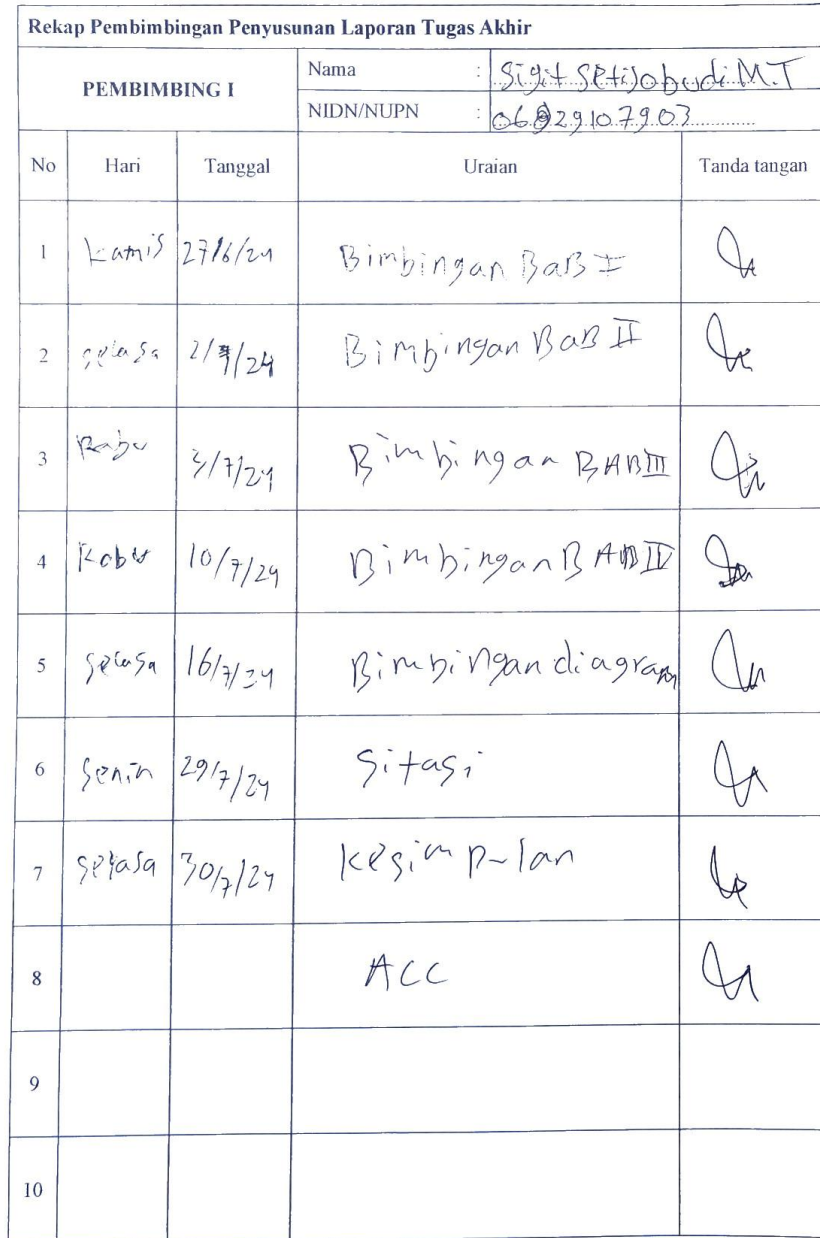 Rekap Pembimbingan Penyusunan Laporan Tugas Akhir
PEMBIMBING I
Nama : Sigit Setijobudi M.T
NIDN/NUPN :
No Hari Tanggal Uraian Tanda tangan
1 Kamis 27/6/24 Bimbingan BaB I
2 selasa 2/7/24 Bimbingan BaB II
3 Rabu 3/7/24 Bimbingan BAB III
4 Rabu 10/7/24 Bimbingan BAB IV
5 Selasa 16/7/24 Bimbingan diagram
6 Senin 29/7/24 Sitasi
7 Selasa 30/7/24 Kesimpulan
8 ACC
9
10